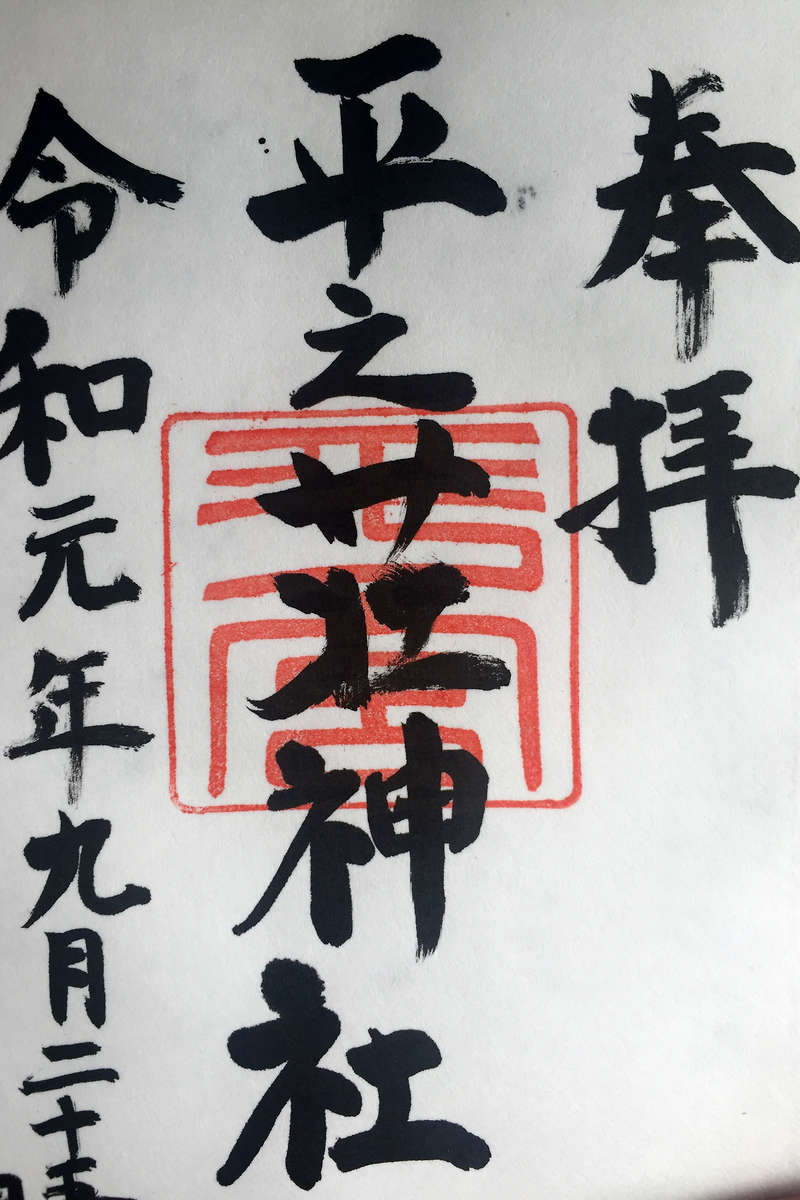 奉拝
平之荘神社
令和元年九月二十五